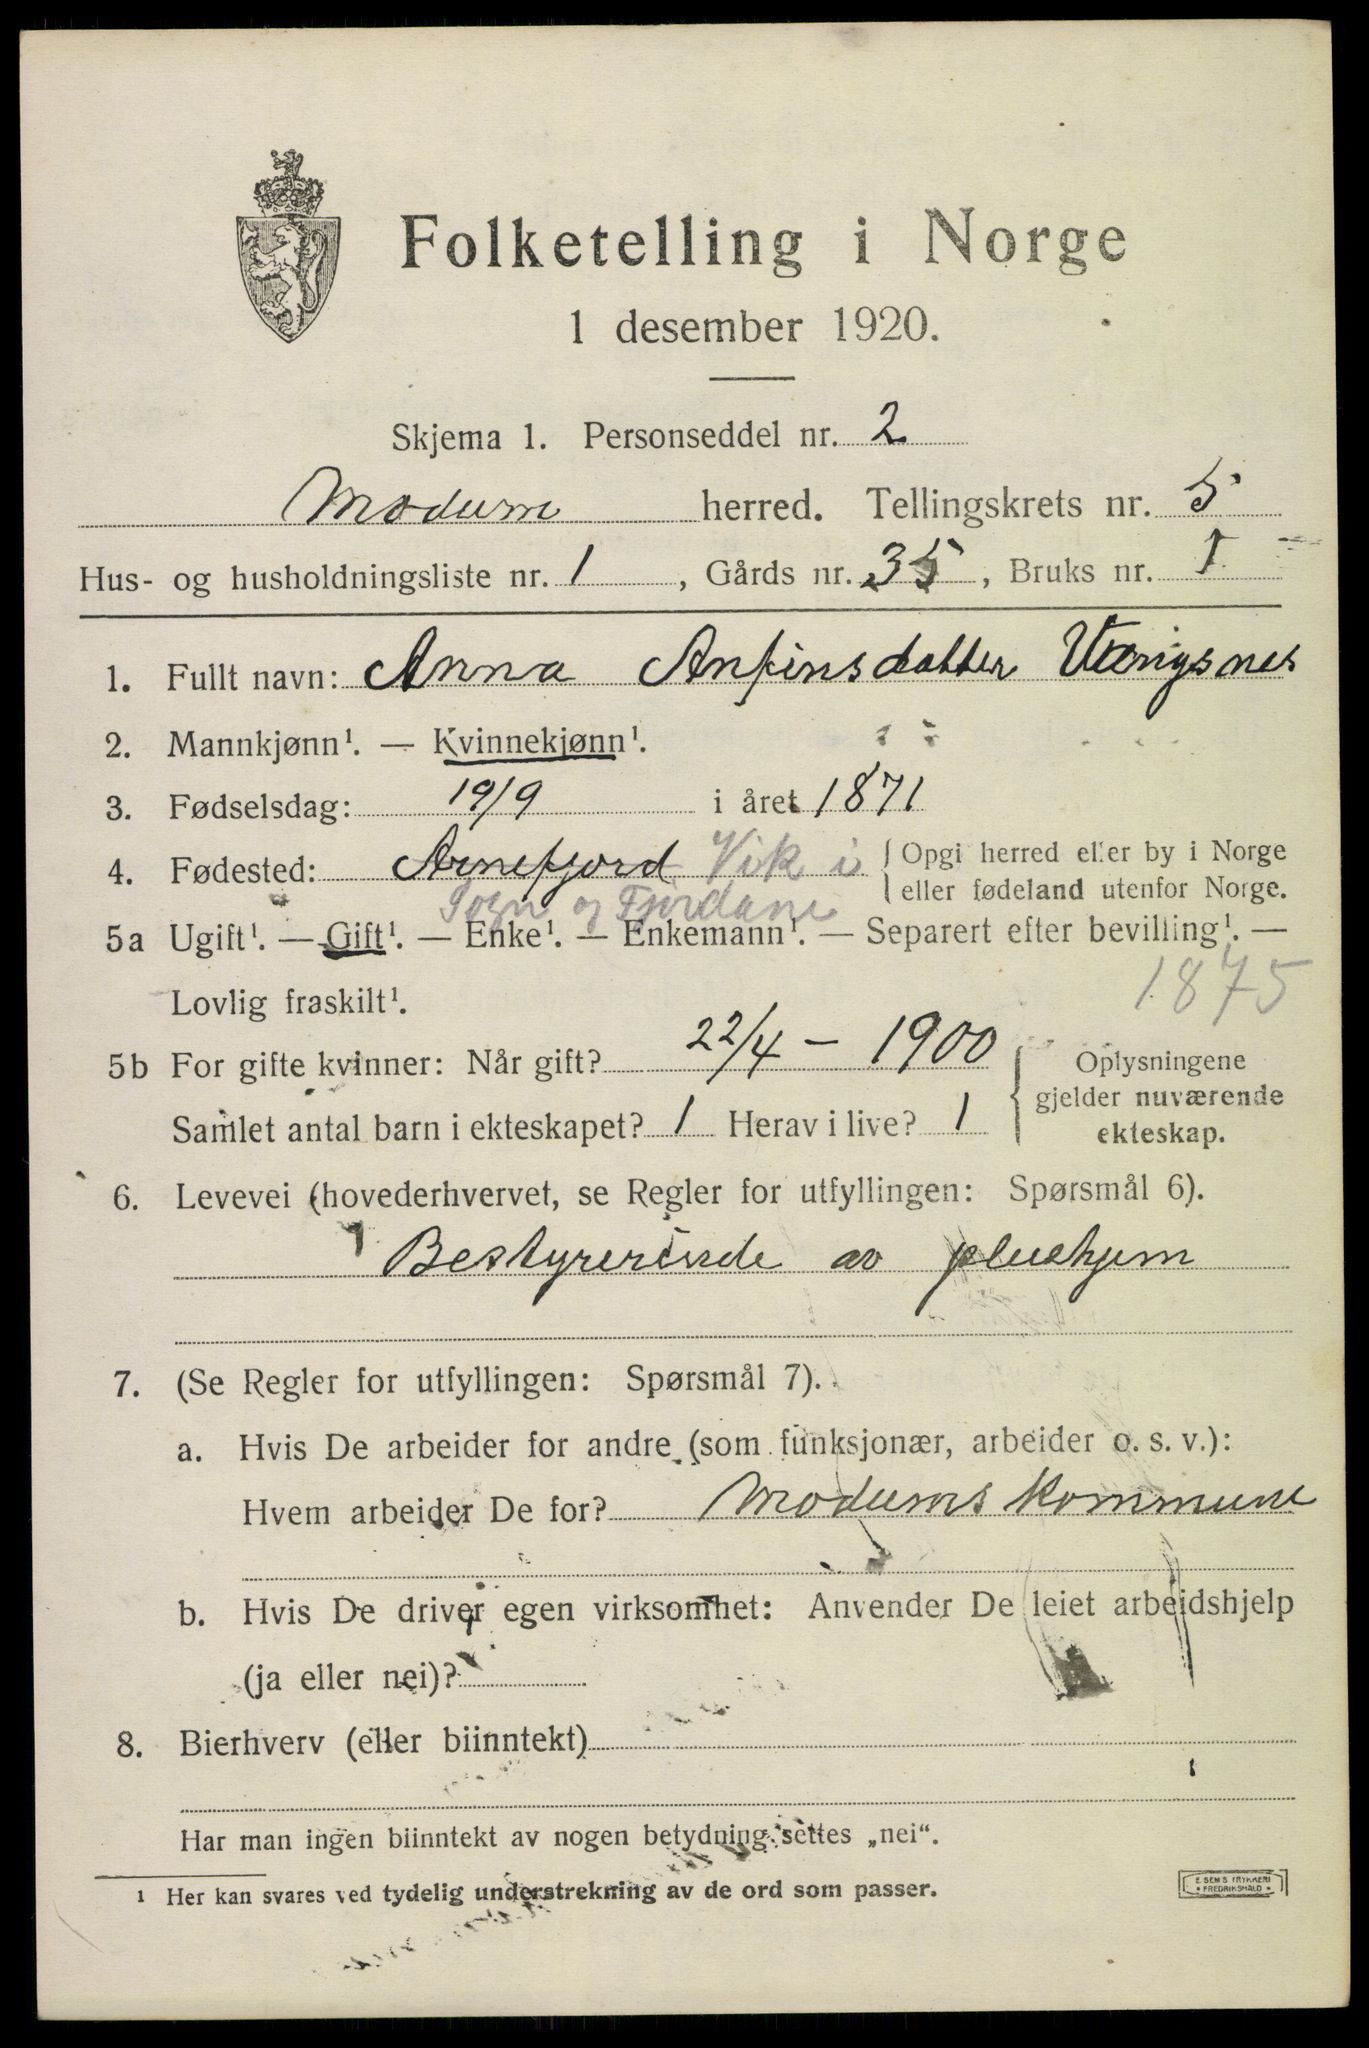 Folketelling i Norge
1 desember 1920.
Skjema 1. Personseddel nr. 2
Modum herred. Tellingskrets nr. 5
Hus- og husholdningsliste nr. 1, Gårds nr. 35, Bruks nr. 1
1. Fullt navn: Anna Anfinsdatter
2. Mannkjønn¹. — Kvinnekjønn¹.
3. Fødselsdag: 19/9 i året 1871
4. Fødested: Arnefjord Vik i { Opgi herred eller by i Norge
eller fødeland utenfor Norge.
Sogn og Fjordane
5a Ugift¹. — Gift¹. — Enke¹. — Enkemann¹. — Separert efter bevilling¹. —
Lovlig fraskilt¹. 1875
5b For gifte kvinner: Når gift? 22/4 — 1900 { Oplysningene
gjelder nuværende
ekteskap.
Samlet antal barn i ekteskapet? 1 Herav i live? 1
6. Levevei (hovederhvervet, se Regler for utfyllingen: Spørsmål 6).
Bestyrerinde av pleiehjem
7. (Se Regler for utfyllingen: Spørsmål 7).
a. Hvis De arbeider for andre (som funksjonær, arbeider o. s. v.):
Hvem arbeider De for? Modums Kommune
b. Hvis De driver egen virksomhet: Anvender De leiet arbeidshjelp
(ja eller nei)?
8. Bierhverv (eller biinntekt)
Har man ingen biinntekt av nogen betydning settes „nei“.
1 Her kan svares ved tydelig understrekning av de ord som passer.
E. SEM'S TRYKKERI
• FREDRIKSHALD •